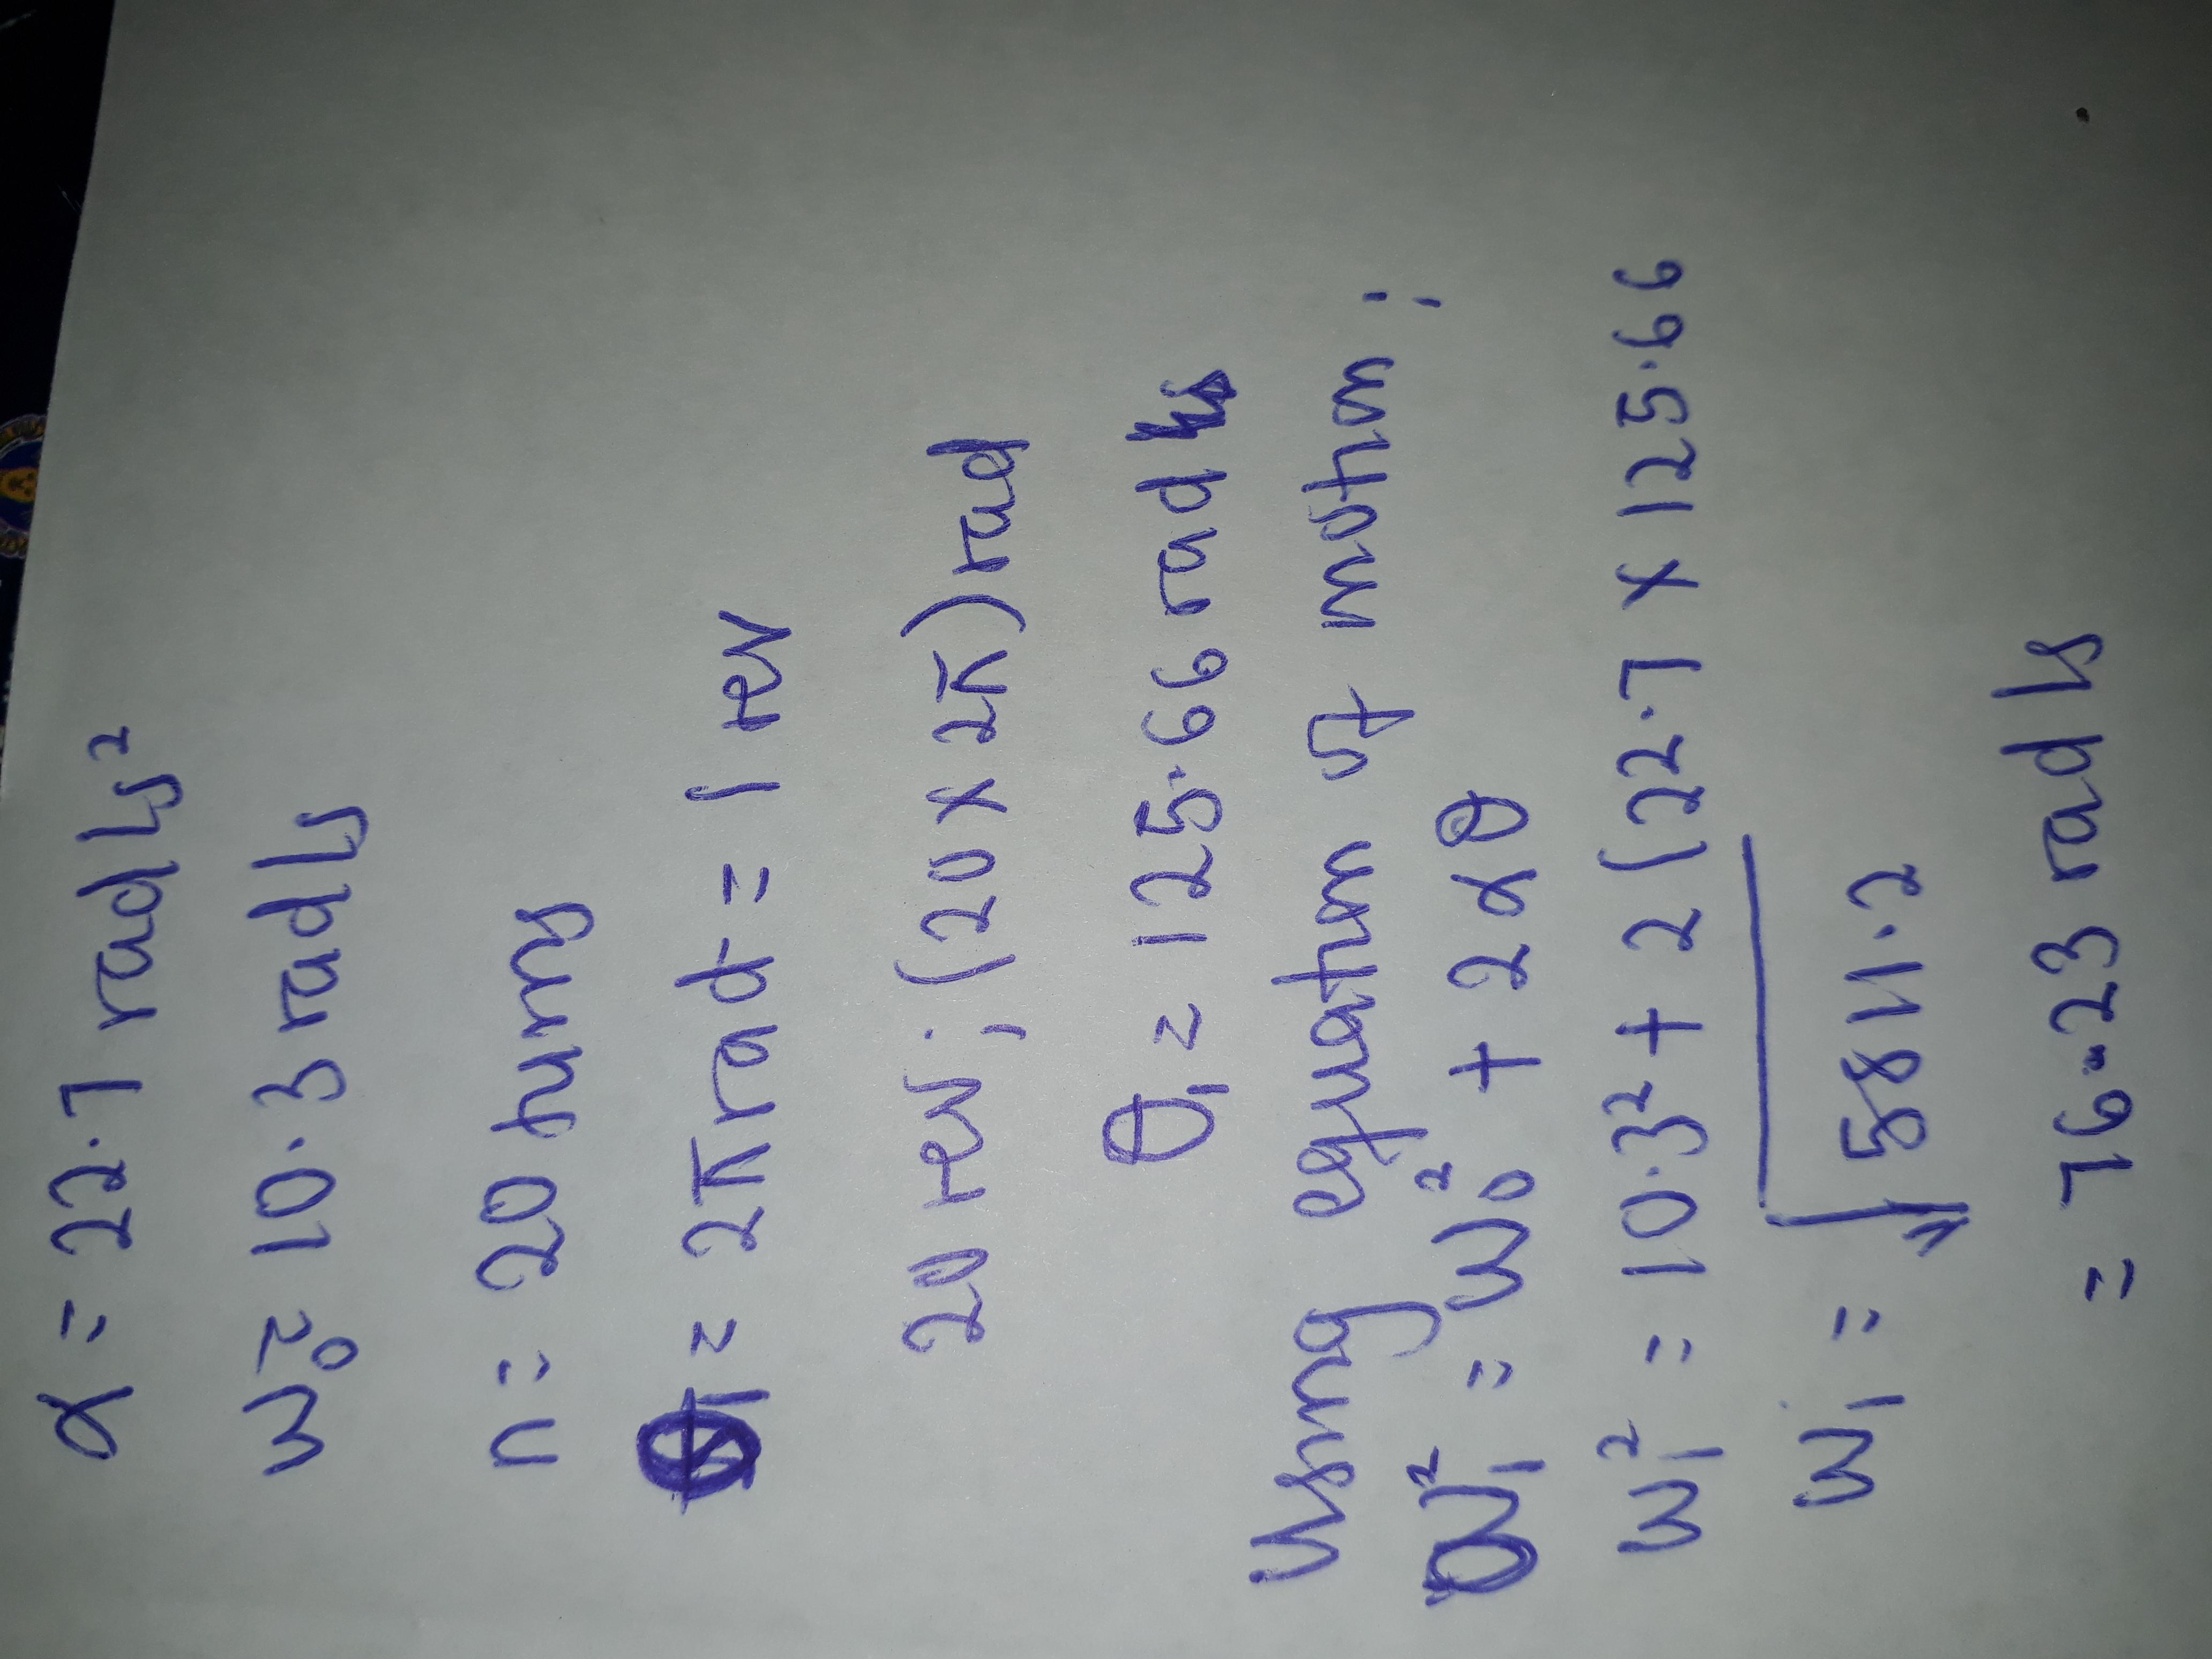 α = 22.7 rad/s²
ω₀ = 10.3 rad/s
n = 20 turns
θ₁ = 2π rad = 1 rev
20 rev; (20 x 2π) rad
θ₁ = 125.66 rad
Using equation of motion:
ω₁² = ω₀² + 2αθ
ω₁² = 10.3² + 2(22.7 x 125.66
ω₁ = √5811.2
= 76.23 rad/s